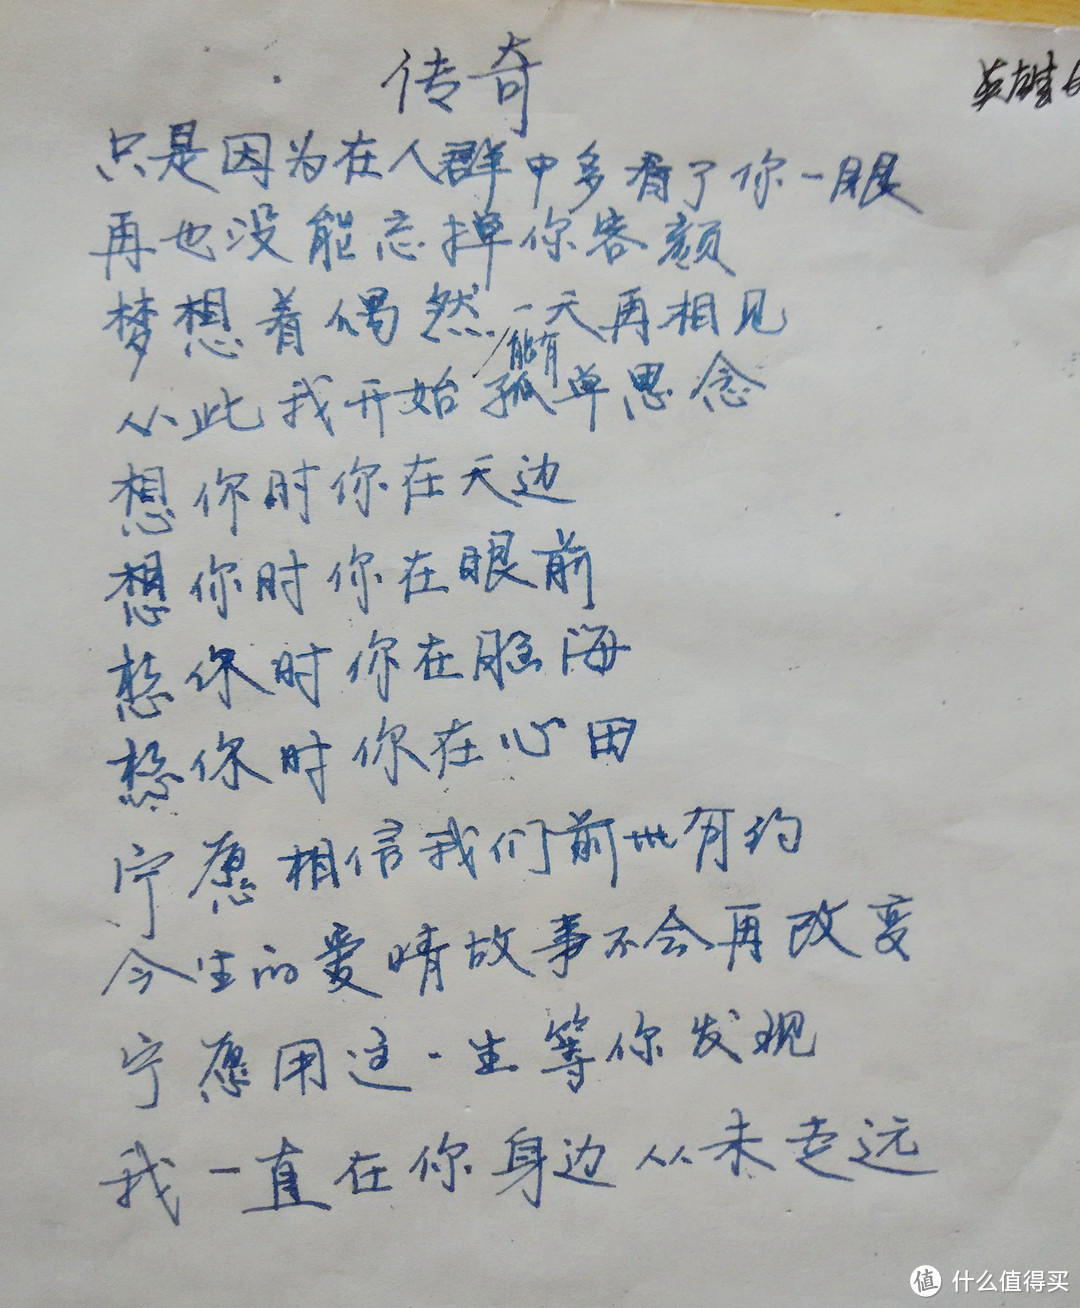 传奇
英雄
只是因为在人群中多看了你一眼
再也没能忘掉你容颜
梦想着偶然能有一天再相见
从此我开始孤单思念
想你时你在天边
想你时你在眼前
想你时你在脑海
想你时你在心田
宁愿相信我们前世有约
今生的爱情故事不会再改变
宁愿用这一生等你发现
我一直在你身边从未走远
值 什么值得买